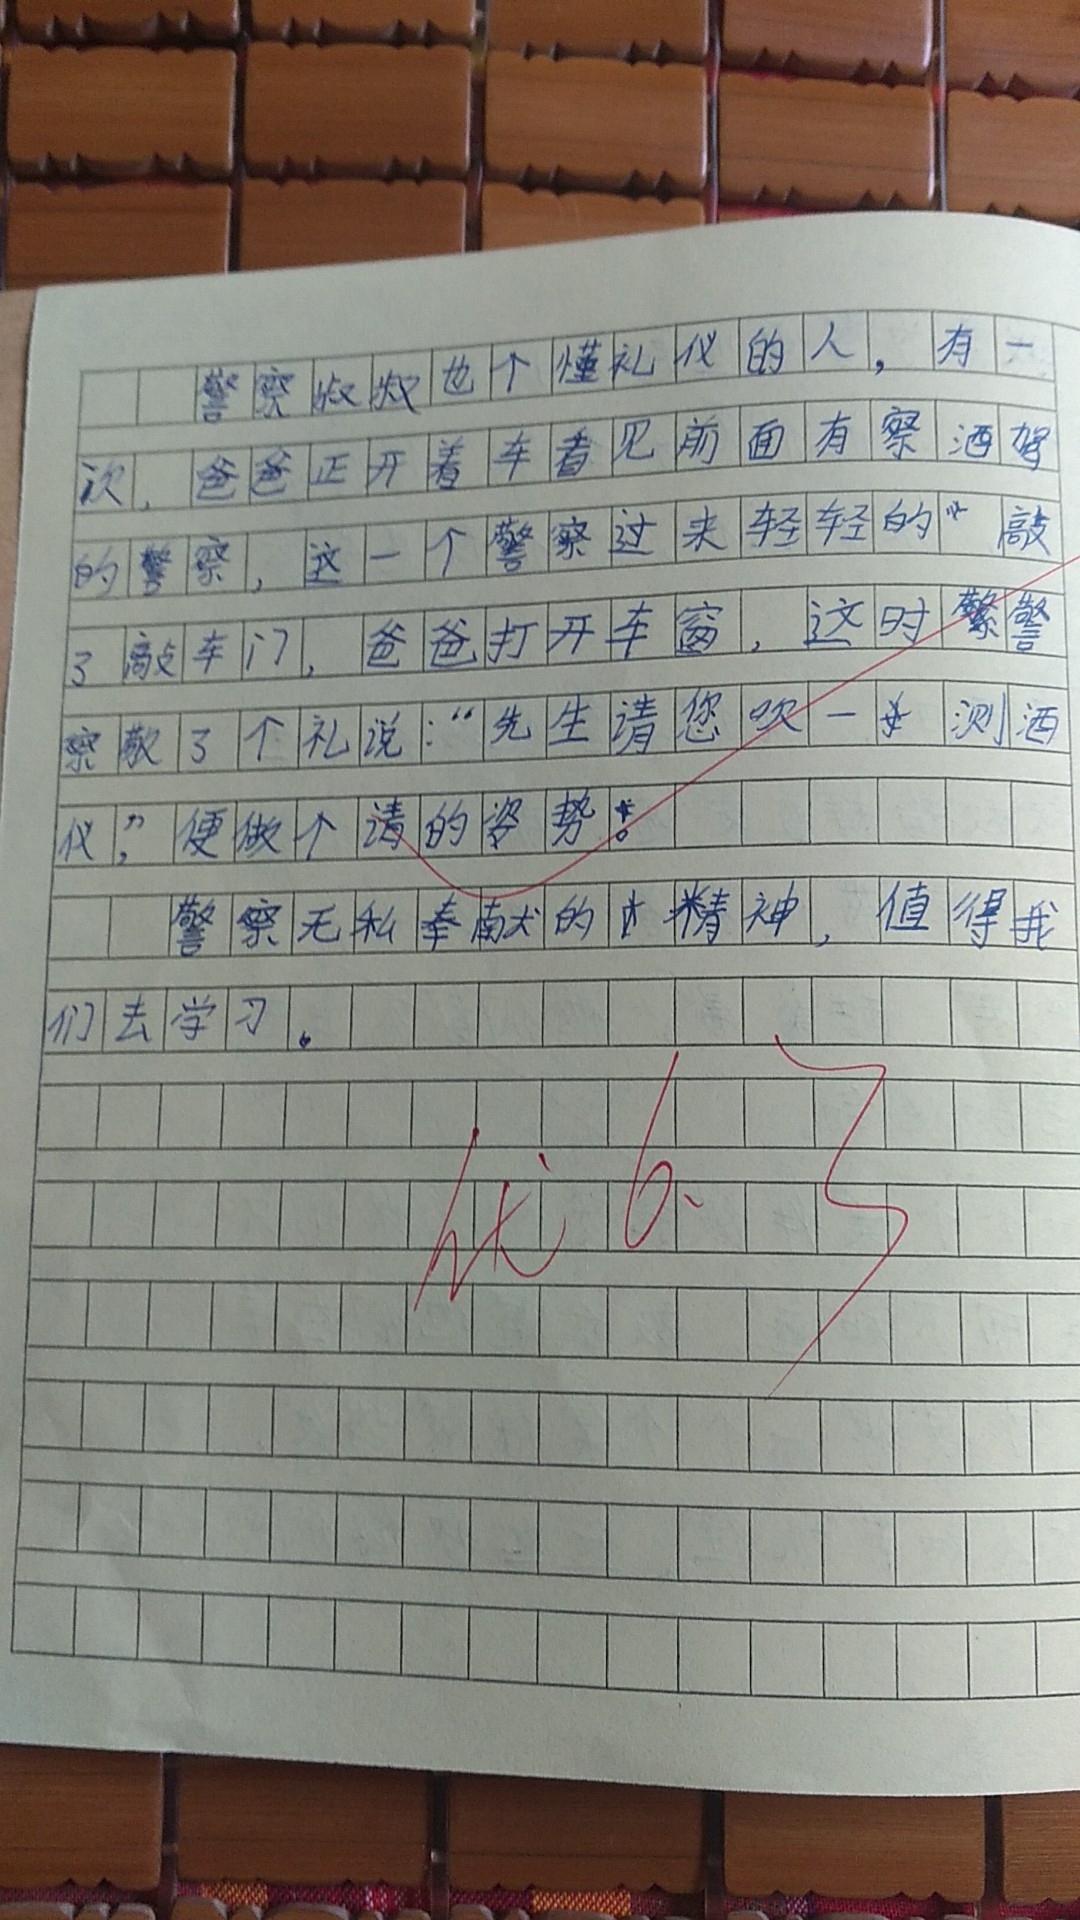 警察叔叔也个懂礼仪的人，有一
次，爸爸正开着车看见前面有察酒驾
的警察，这一个警察过来轻轻的“敲
了敲车门，爸爸打开车窗，这时警
察敬了个礼说：“先生请您吹一 测酒
仪，”便做个请的姿势。
警察无私奉献的精神，值得我
们去学习。
优 6.3